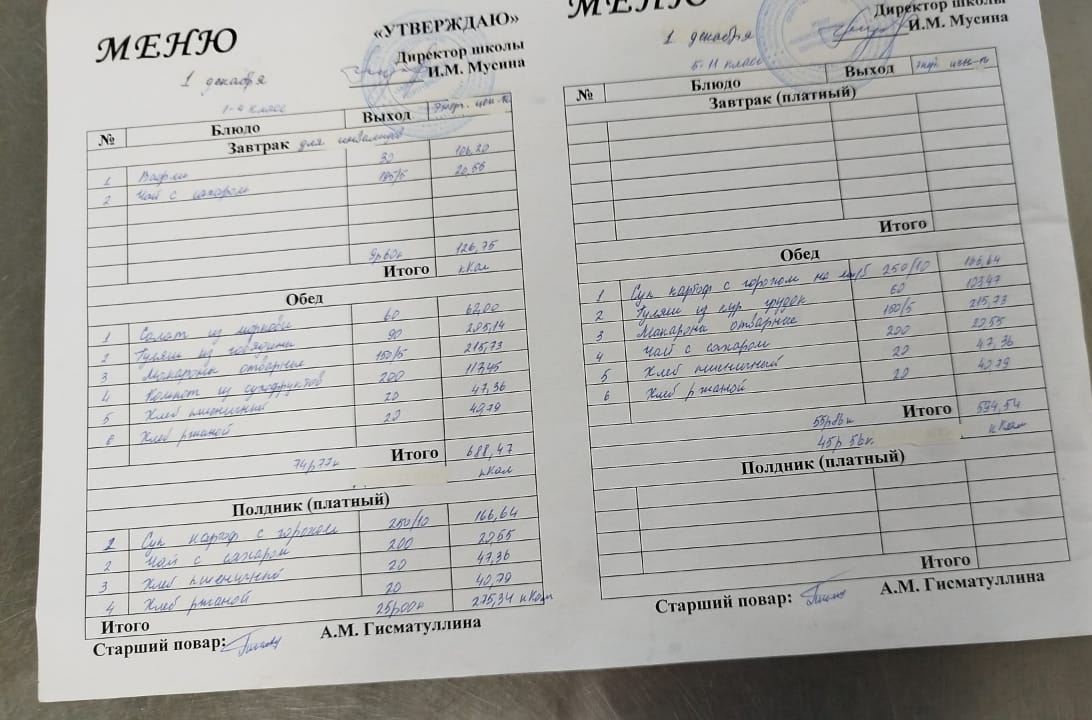 МЕНЮ
«УТВЕРЖДАЮ»
Директор школы
И.М. Мусина
1 декабря
1-4 класс
№ Блюдо Выход Энерг. цен-ть
Завтрак для инвалидов
1 Вафли 30 106,20
2 Чай с сахаром 195/5 20,55
9р60к 126,75
Итого кКал
Обед
1 Салат из моркови 60
2 Гуляш из говядины 90 205,14
3 Макароны отварные 150/5 215,73
4 Компот из сухофруктов 200 117,45
5 Хлеб пшеничный 20 47,36
6 Хлеб ржаной 20 40,79
74р77к Итого 688,47
кКал
Полдник (платный)
1 Суп картоф с горохом 250/10 166,64
2 Чай с сахаром 200 20,55
3 Хлеб пшеничный 20 47,36
4 Хлеб ржаной 20 40,79
Итого 25р00к 275,34 кКал
Старший повар: А.М. Гисматуллина
МЕНЮ
Директор школы
И.М. Мусина
1 декабря
5-11 класс
№ Блюдо Выход Энер цен-ть
Завтрак (платный)
Итого
Обед
1 Суп картоф с горохом на 250/10 166,64
2 Гуляш из кур грудок 60 103,47
3 Макароны отварные 150/5 215,73
4 Чай с сахаром 200 20,55
5 Хлеб пшеничный 20 47,36
6 Хлеб ржаной 20 40,79
Итого 594,54
45р 56к. кКал
Полдник (платный)
Итого
Старший повар: А.М. Гисматуллина